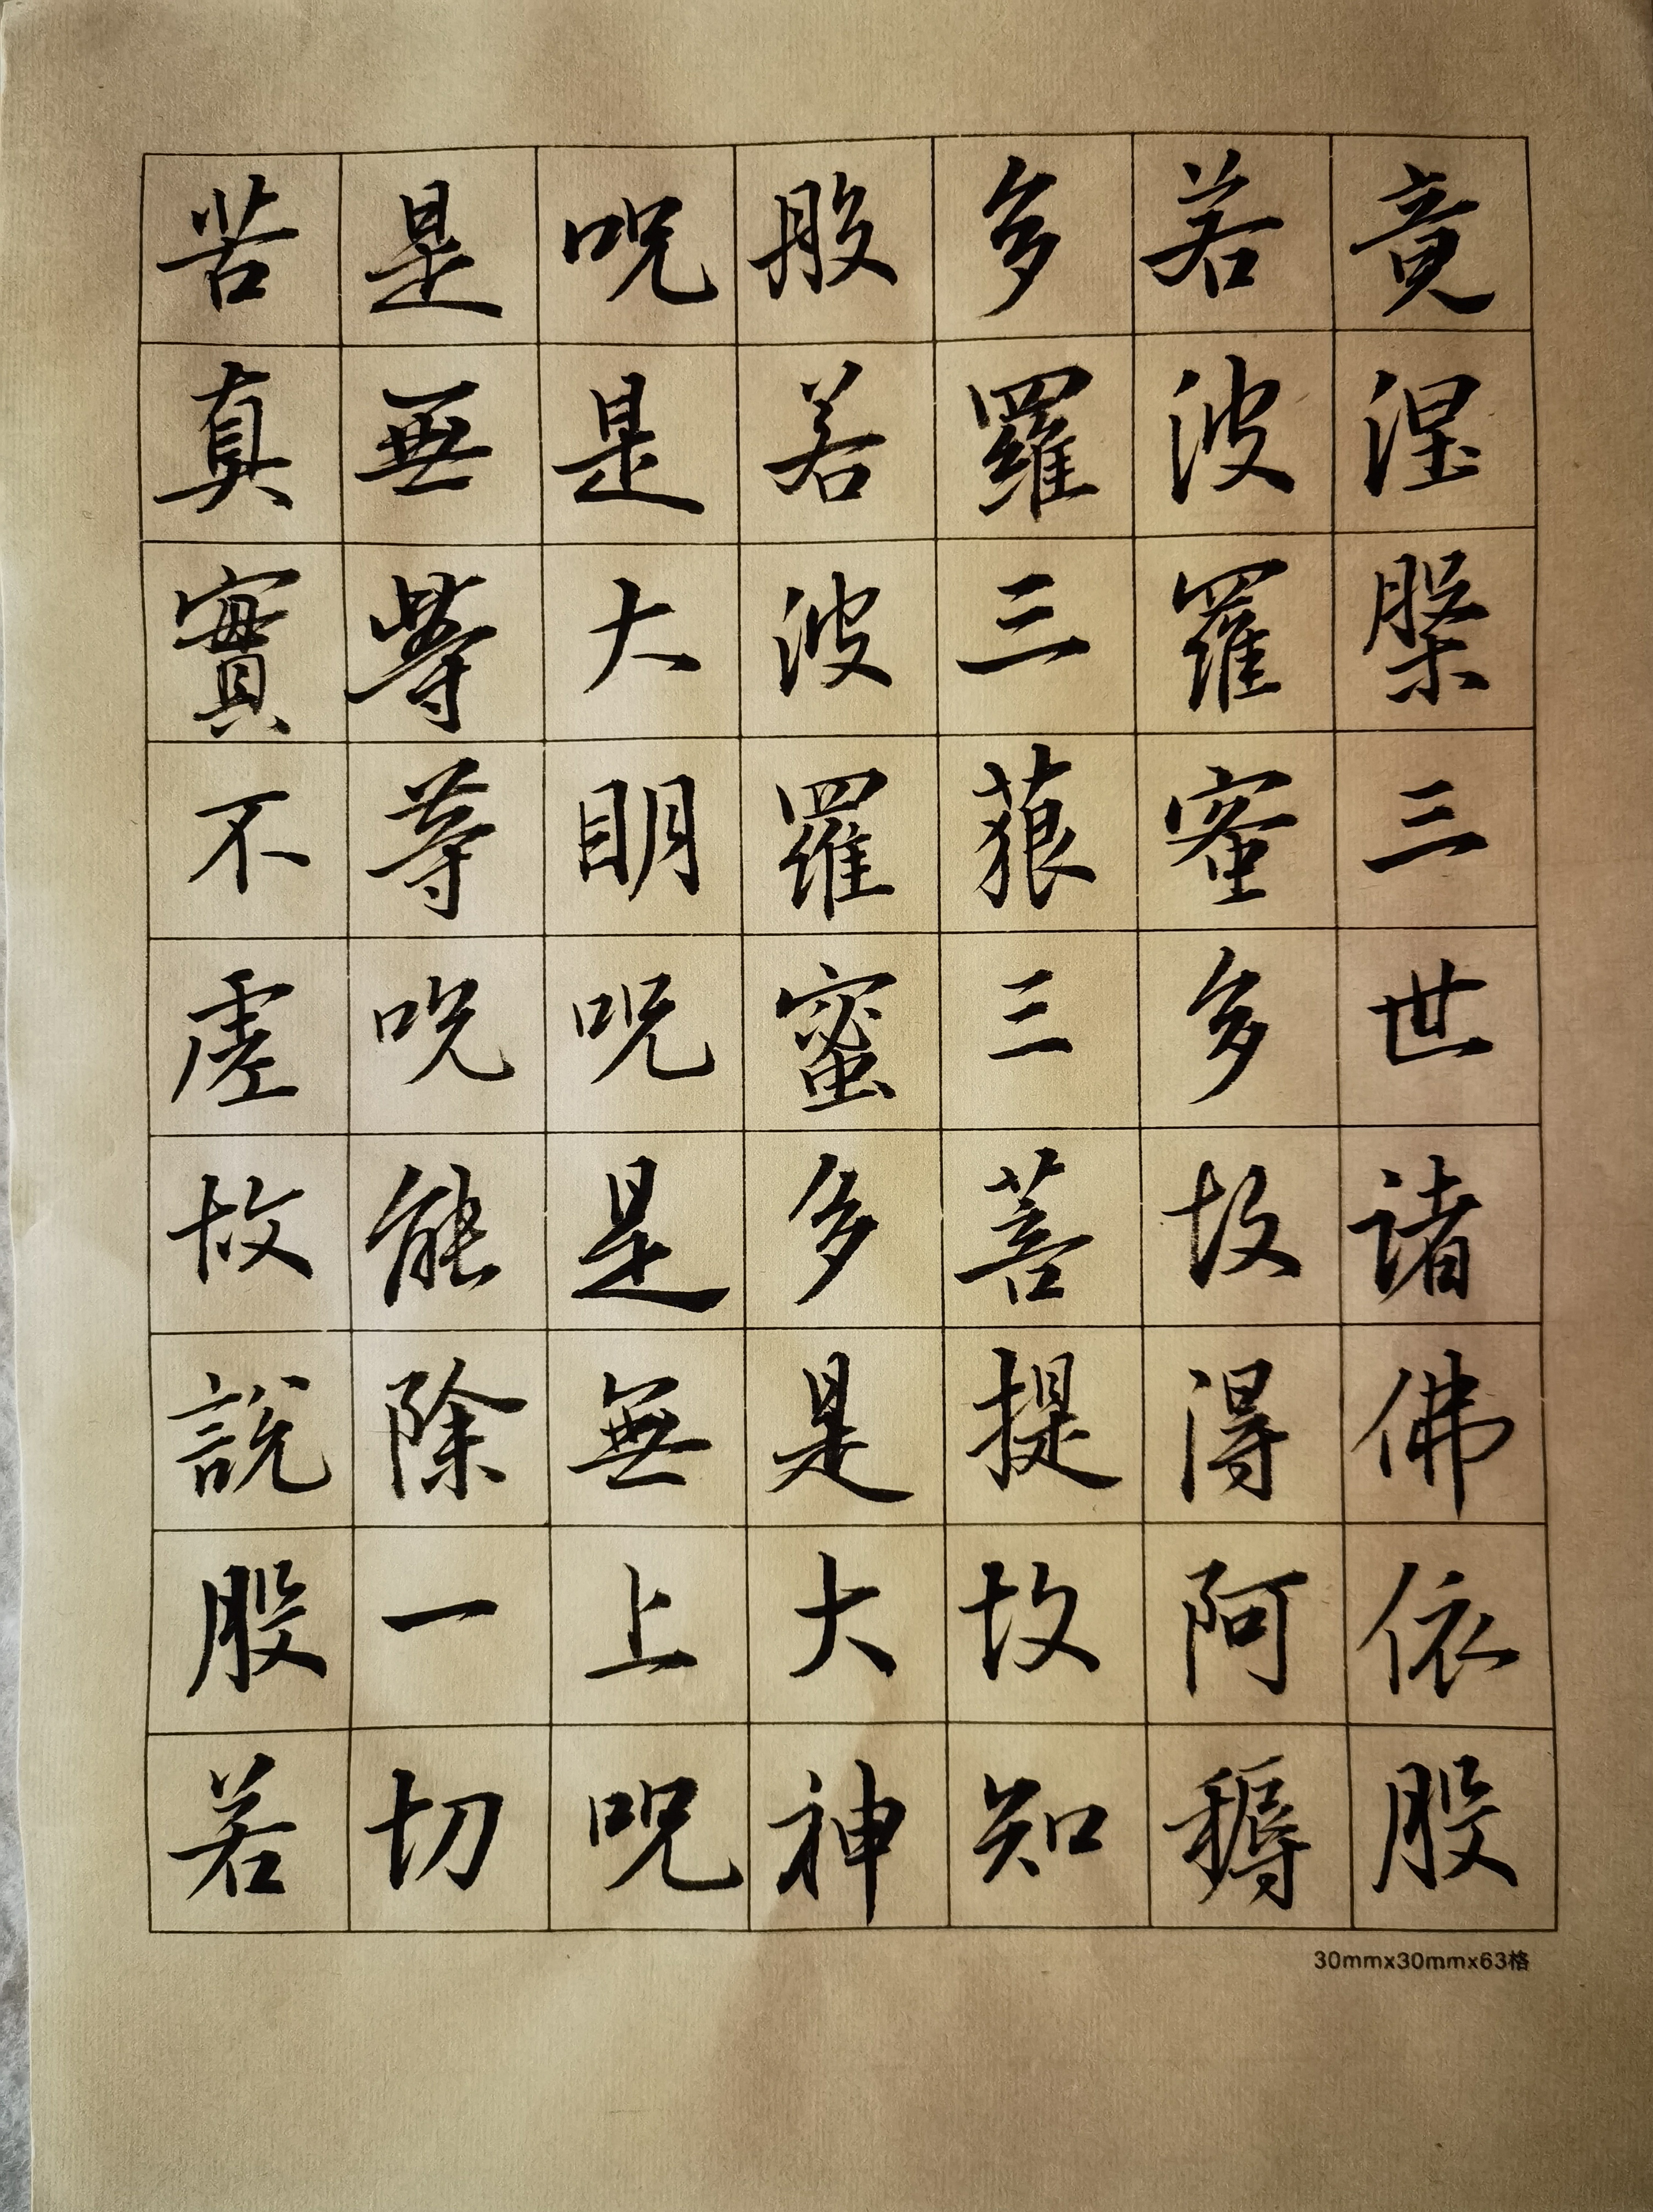 竟涅槃三世諸佛依般
若波羅蜜多故得阿耨
多羅三藐三菩提故知
般若波羅蜜多是大神
呪是大明呪是無上呪
是無等等呪能除一切
苦真實不虛故說般若
30mmx30mmx63格